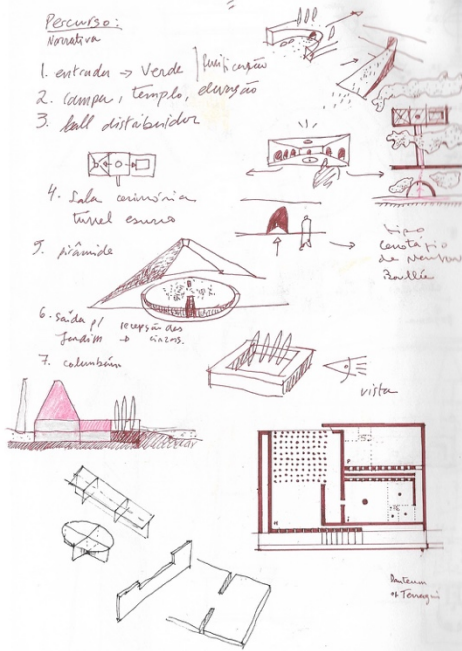 Percurso:
Narrativa
1. entrada → Verde | purificação
2. campa, templo, elevação
3. hall distribuidor
4. Sala cerimónia
tunel escuro
5. pirâmide
6. saída p/ recepção das
Jardim → cinzas.
7. columbário
tipo
Cenotáfio
de Newton
Boullée
vista
Danteum
Terragni